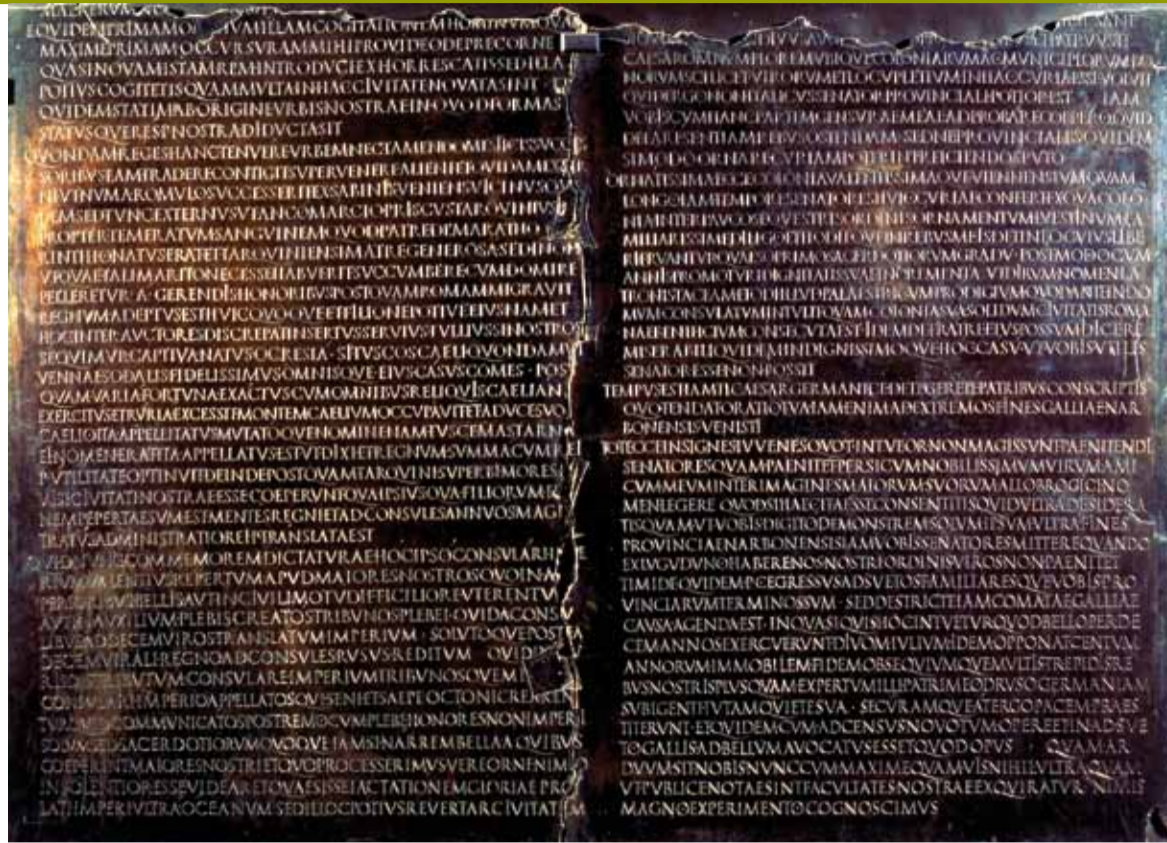 EQVIDEMPRIMAMOMNIVMILLAMCOGITATIONEMHOMINVMQVAM
MAXIMEPRIMAMOCCVRSVRAMMIHIPROVIDEODEPRECORNE
QVASINOVAMISTAMREMINTRODVCIEXHORRESCATISSEDILLA
POTIVSCOGITETISQVAMMVLTAINHACCIVITATENOVATASINT
QVIDEMSTATIMABORIGINEVRBISNOSTRAEINQVODFORMAS
STATVSQVERESPNOSTRADIDVCTASIT
QVONDAMREGESHANCTENVEREVRBEMNECTAMENDOMESTICISSVCC
SORIBVSEAMTRADERECONTIGITSVPERVENEREALIENIETQVIDAMEXTE
NIVTNVMAROMVLOSVCCESSERITEXSABINISVENIENSVICINVSQV
DEMSEDTVNCEXTERNVSVTANCOMARCIOPRISCVSTARQVINIVS
PROPTERTEMERATVMSANGVINEMQVODPATREDEMARATHO
RINTHIONATVSERATETTARQVINIENSIMATREGENEROSASEDINOPI
VTQVAETALIMARITONECESSEHABVERITSVCCVMBERECVMDOMIRE
PELLERETVR A GERENDISHONORIBVSPOSTQVAMROMAMMIGRAVIT
REGNVMADEPTVSESTHVICQVOQVEETFILIONEPOTIVEEIVSNAMET
HOCINTERAVCTORESDISCREPATINSERTVSSERVIVSTVLLIVSSINOSTROS
SEQVIMVRCAPTIVANATVSOCRESIA SITVSCOSCAELIQVONDAM
VENNAESODALISFIDELISSIMVSOMNISQVE EIVSCASVSCOMES POS
QVAMVARIAFORTVNAEXACTVSCVMOMNIBVSRELIQVISCAELIAN
EXERCITVSETRVRIAEXCESSITMONTEMCAELIVMOCCVPAVITETADVCESVO
CAELIOITAAPPELLITATVSMVTATOQVENOMINENAMTVSCEMASTARN
EINOMENERATITAAPPELLATVSESTVTDIXIETREGNVMSVMMACVMREI
PVTILITATEOPTINVITDEINDEPOSTQVAMTARQVINISVPERBIMORES I
VISICIVITATINOSTRAEESSECOEPERVNTQVAIPSIVSQVAFILIORVMEI
NEMPEPERTAESVMESTMENTESREGNIETADCONSVLESANNVOSMAGI
TRATVSADMINISTRATIOREIPTRANSLATAEST
QVIDNVNCCOMMEMOREMDICTATVRAEHOCIPSOCONSVLARIIMPE
RIVMVALENTIVSREPERTVMAPVDMAIORESNOSTROSQVOINAS
PERIORIBVSBELLISAVTINCIVILIMOTVDIFFICILIOREVTERENTVR
AVTINAVXILIVMPLEBISCREATOSTRIBVNOSPLEBEI QVIDACONSV
LIBVSADDECEMVIROSTRANSLATVMIMPERIVM SOLVTOQVEPOSTEA
DECEMVIRALIREGNOADCONSVLESRVSVSREDITVM QVIDIN
RISDISTRIBVTVMCONSVLAREIMPERIVMTRIBVNOSQVEMI
CONSVLARIIMPERIOAPPELLATOSQVISENIETSAEPEOCTONICREAREN
TVRQVIDCOMMVNICATOSPOSTREMOCVMPLEBEHONORESNONIMPERI
SOLVMSEDSACERDOTIORVMQVOQVE IAMSINARREMBELLAAQVIBVS
COEPERINTMAIORESNOSTRIETQVOPROCESSERIMVSVEREORNENIMIO
INSOLENTIORESSEVIDEARETQVAESISSEIACTATIONEMGLORIAEPRO
LATIIMPERIVLTRAOCEANVMSEDILLOCPOTIVSREVERTARCIVITATEM
CAESAROMNEMFLOREMVBIQVECOLONIARVMACMVNICIPIORVMBO
NORVMSCILICETVIRORVMETLOCVPLETIVMINHACCVRIAESSEVOLVIT
QVIDERGONONITALICVSSENATORPROVINCIALIPOTIOREST IAM
VOBISCVMHANCPARTEMCENSVRAEMEAEADPROBARECOEPEROQVID
DEEARESENTIAMREBVSOSTENDAM SEDNEPROVINCIALESQVIDEM
SIMODOORNARECVRIAMPOTERINTREICIENDOSPVTO
ORNATISSIMAECCECOLONIAVALENTISSIMAQVEVIENNENSIVMQVAM
LONGOIAMTEMPORESENATORESHVICCVRIAECONFERTEXQVACOLO
NIAINTERPAVCOSEQVESTRISORDINISORNAMENTVMLVESTINVMFA
MILIARISSIMEDILIGOETHODIEQVEINREBVSMEISDETINEOCVIVSLIBE
RIFRVANTVRQVAESOPRIMOSACERDOTIORVMGRADV POSTMODOCVM
ANNISPROMOTVRIDIGNITATISSVAEINCREMENTAVTDIRVMNOMENLA
TRONISTACEAMETODIILLVDPALAESTRICVMPRODIGIVMQVODANTEINDO
MVMCONSVLATVMINTVLITQVAMCOLONIASVASOLIDVMCIVITATISROMA
NAEBENIFICIVMCONSECVTAEST IDEMDEFRATREEIVSPOSSVMDICERE
MISERABILIQVIDEMINDIGNISSIMOQVEHOCCASVVTVOBISVTILIS
SENATORESSENONPOSSIT
TEMPVSESTIAMTICAESARGERMANICEDETEGERETEPATRIBVSCONSCRIPTIS
QVOTENDATORATIOTVAIAMENIMADEXTREMOSFINESGALLIAENAR
BONENSISVENISTI
TOTECCEINSIGNESIVVENESQVOTINTVEORNONMAGISSVNTPAENITENDI
SENATORESQVAMPAENITETPERSICVMNOBILISSIMVMVIRVMAMI
CVMMEVMINTERIMAGINESMAIORVMSVORVMALLOBROGICINO
MENLEGERE QVODSIHAECITAESSECONSENTITISQVIDVLTRADESIDERA
TISQVAMVTVOBISDIGITODEMONSTREMSOLVMIPSVMVLTRAFINES
PROVINCIAENARBONENSISIAMVOBISSENATORESMITTEREQVANDO
EXLVGVDVNOHABERENOSNOSTRIORDINISVIROSNONPAENITET
TIMIDEQVIDEMPCEGRESSVSADSVETOSFAMILIARESQVEVOBISPRO
VINCIARVMTERMINOSSVM SEDDESTRICTEIAMCOMATAEGALLIAE
CAVSAAGENDAEST INQVASIQVISHOCINTVETVRQVODBELLOPERDE
CEMANNOSEXERCVERVNTDIVOMIVLIVMIDEMOPPONATCENTVM
ANNORVMIMMOBILEMFIDEMOBSEQVIVMQVEMVLTISTREPIDISRE
BVSNOSTRISPLVSQVAMEXPERTVMILLIPATRIMEODRVSOGERMANIAM
SVBIGENTITVTAMQVIETESVA SECVRAMQVEATERGOPACEMPRAES
TITERVNT ETQVIDEMCVMADCENSVSNOVOTVMOPEREETINADSVE
TOGALLISADBELLVMAVOCATVSESSETQVODOPVS QVAMAR
DVVMSITNOBISNVNCCVMMAXIMEQVAMVISNIHILVLTRAQVAM
VTPVBLICENOTAESINTFACVLTATESNOSTRAEEXQVIRATVR NIMIS
MAGNOEXPERIMENTOCOGNOSCIMVS